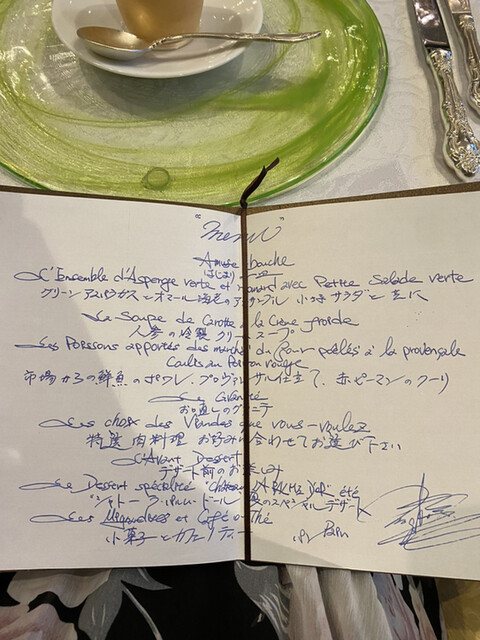 "Menu"
Amuse bouche
はじまりの一皿
L'Ensemble d'Asperge verte et homard avec Petite Salade verte
グリーンアスパラガスとオマール海老のアンサンブル 小さなサラダと共に
La Soupe de Carotte à la Crème froide
人参の冷製クリームスープ
Les Poissons apportés des marché du jour poêlés à la provençale
Coulis au Poivron rouge
市場からの鮮魚のポワレ、プロヴァンサル仕立て、赤ピーマンのクーリ
Le Granité
お口直しのグラニテ
Les choix des Viandes que vous-voulez
特選肉料理 お好みに合わせてお選び下さい
L'Avant Dessert
デザート前のお楽しみ
Le Dessert spécialité Château LA PALME D'OR été
"シャトーラ・パルム・ドール" 夏のスペシャルデザート
Les Mignardises et Café ou Thé
小菓子とカフェ/ティー
Pain